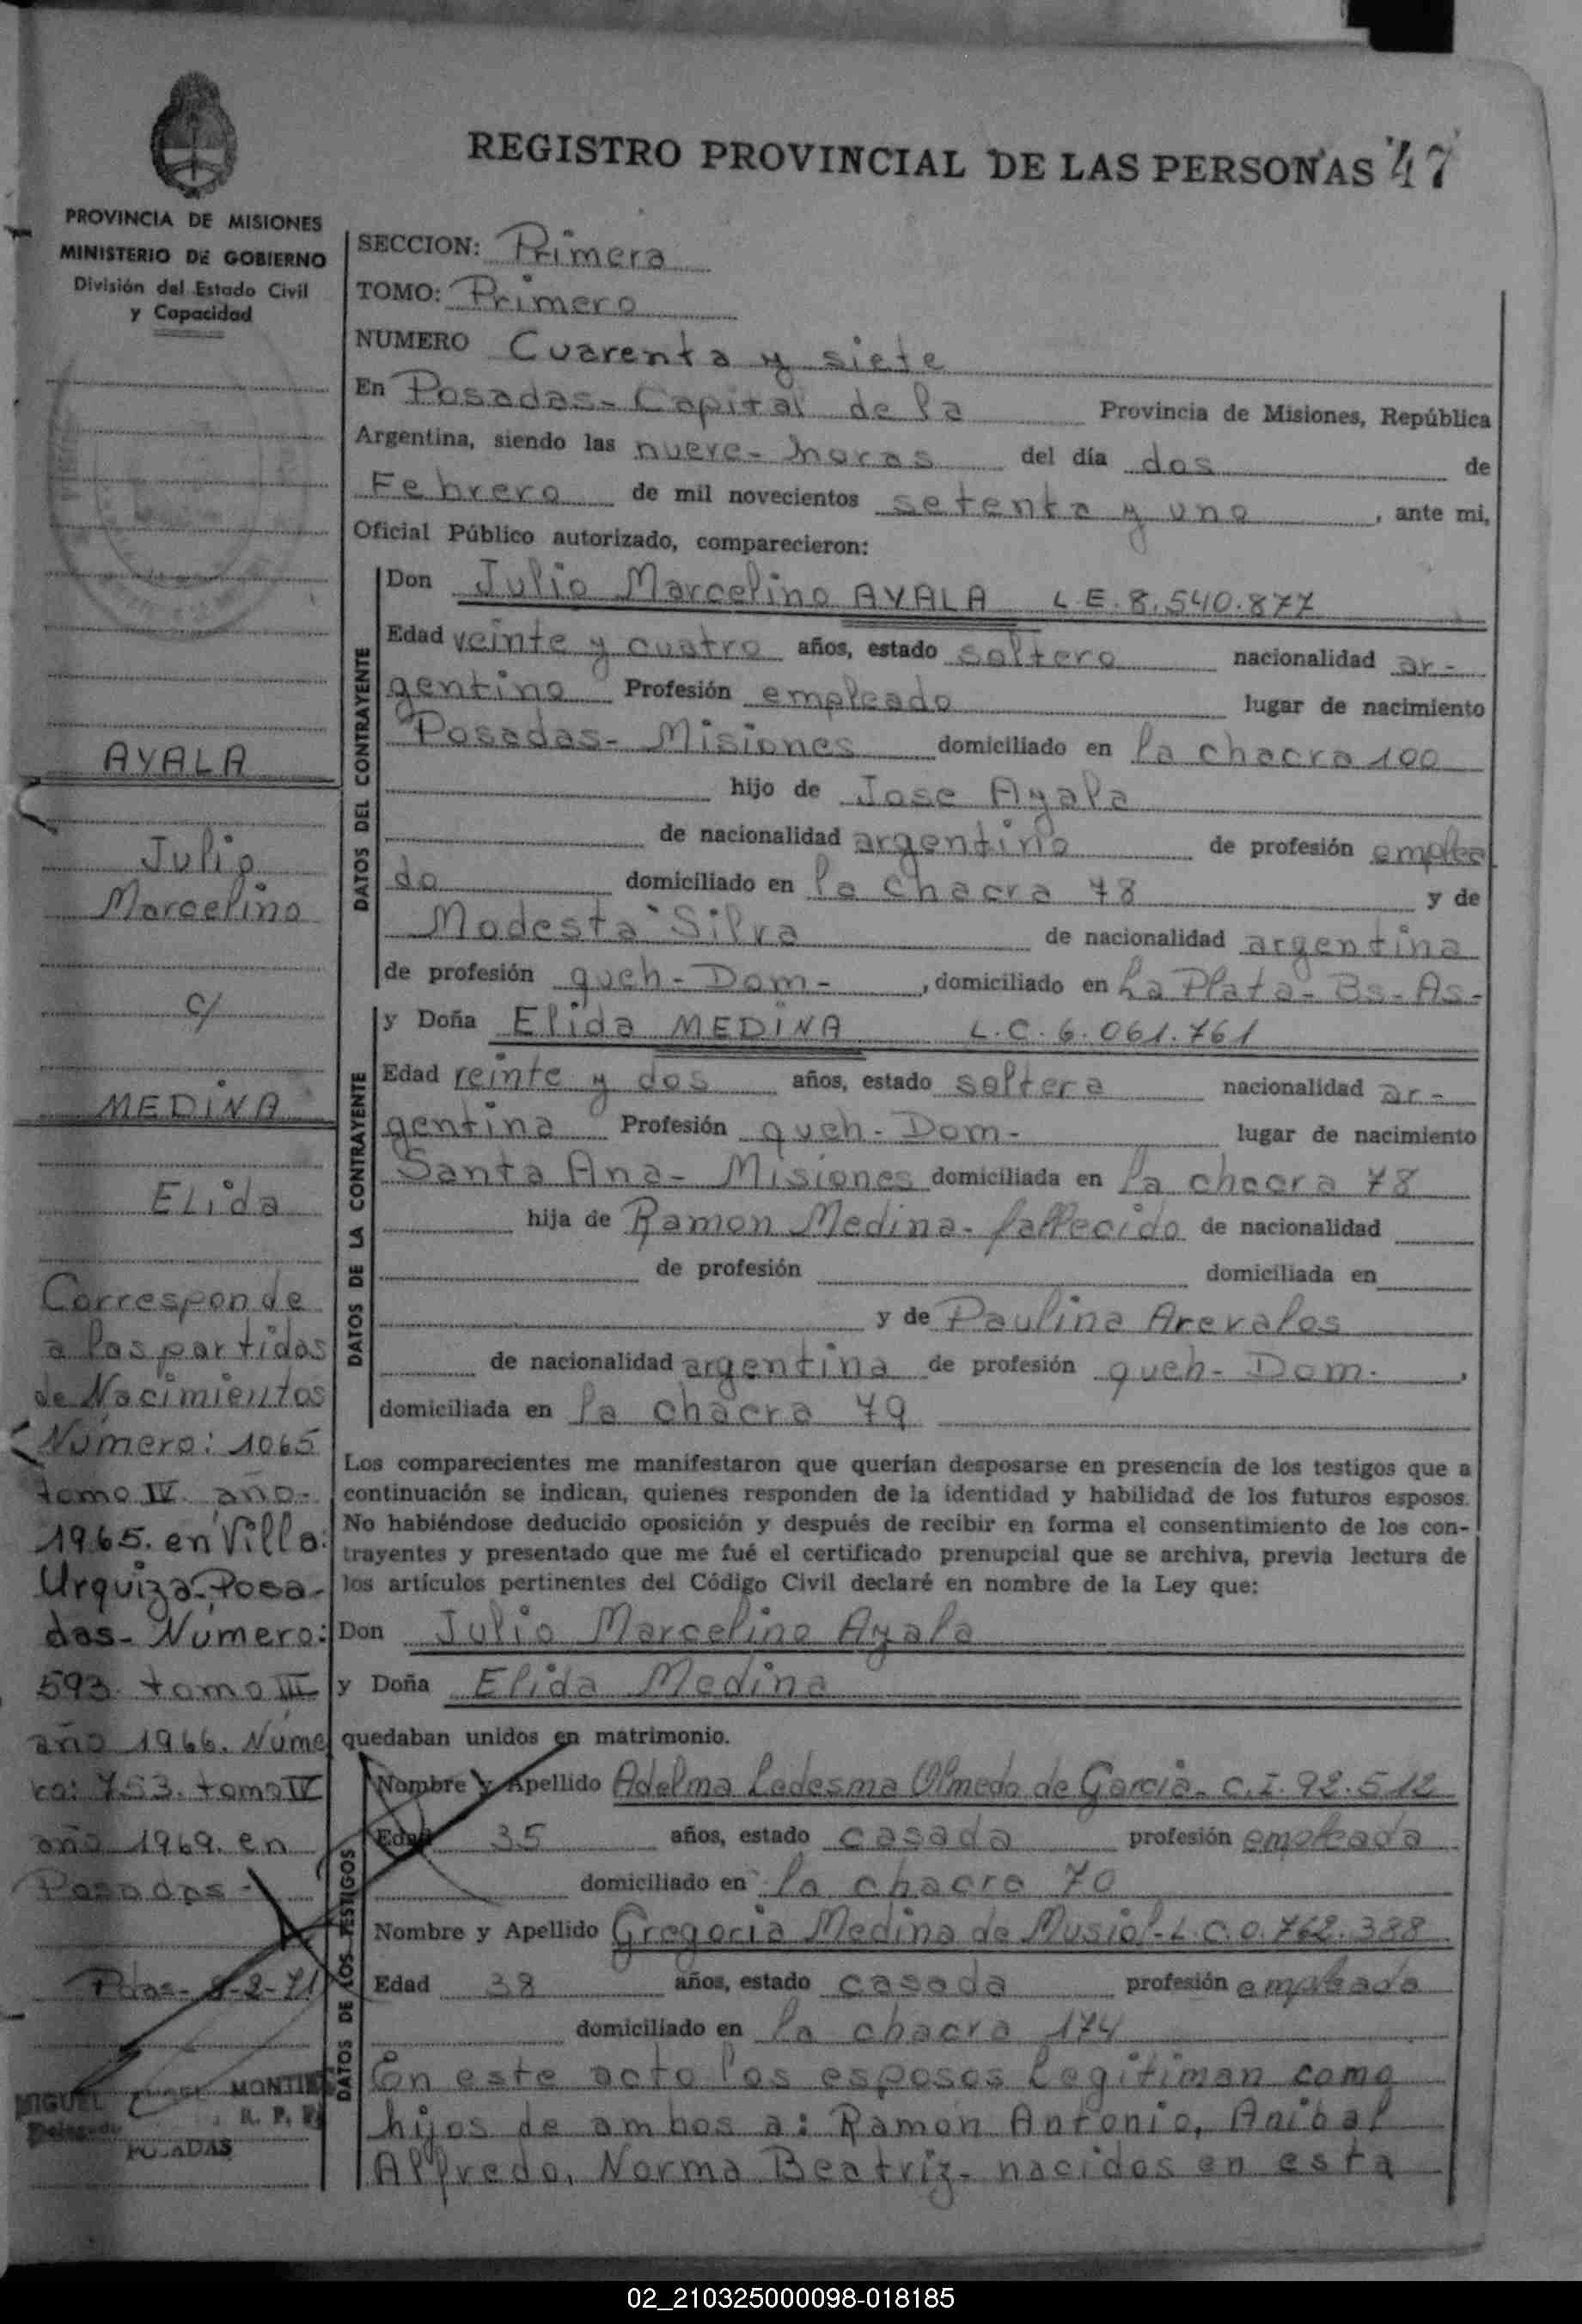 REGISTRO PROVINCIAL DE LAS PERSONAS 47
PROVINCIA DE MISIONES
MINISTERIO DE GOBIERNO
División del Estado Civil
y Capacidad
SECCION: Primera
TOMO: Primero
NUMERO Cuarenta y siete
En Posadas - Capital de la Provincia de Misiones, República
Argentina, siendo las nueve - horas del día dos de
Febrero de mil novecientos setenta y uno, ante mi,
Oficial Público autorizado, comparecieron:
DATOS DEL CONTRAYENTE
Don Julio Marcelino AYALA L.E. 8.540.877
Edad veinte y cuatro años, estado soltero nacionalidad ar-
gentino Profesión empleado lugar de nacimiento
Posadas - Misiones domiciliado en la chacra 100
hijo de Jose Ayala
de nacionalidad argentino de profesión emplea
do domiciliado en la chacra 78 y de
Modesta Silva de nacionalidad argentina
de profesión queh - Dom -, domiciliado en La Plata - Bs - As -
DATOS DE LA CONTRAYENTE
y Doña Elida MEDINA L.C. 6.061.761
Edad veinte y dos años, estado soltera nacionalidad ar-
gentina Profesión queh - Dom - lugar de nacimiento
Santa Ana - Misiones domiciliada en la chacra 78
hija de Ramon Medina - fallecido de nacionalidad
de profesión domiciliada en
y de Paulina Arevalos
de nacionalidad argentina de profesión queh - Dom -,
domiciliada en la chacra 79
Los comparecientes me manifestaron que querían desposarse en presencia de los testigos que a
continuación se indican, quienes responden de la identidad y habilidad de los futuros esposos.
No habiéndose deducido oposición y después de recibir en forma el consentimiento de los con-
trayentes y presentado que me fué el certificado prenupcial que se archiva, previa lectura de
los artículos pertinentes del Código Civil declaré en nombre de la Ley que:
Don Julio Marcelino Ayala
y Doña Elida Medina
quedaban unidos en matrimonio.
DATOS DE LOS TESTIGOS
Nombre y Apellido Adelma Ledesma Olmedo de Garcia - C.I. 92.512
Edad 35 años, estado casada profesión empleada
domiciliado en la chacra 70
Nombre y Apellido Gregoria Medina de Musiol - L.C. 0.762.388
Edad 38 años, estado casada profesión empleada
domiciliado en la chacra 174
En este acto los esposos legitiman como
hijos de ambos a: Ramon Antonio, Anibal
Alfredo, Norma Beatriz - nacidos en esta
AYALA
Julio
Marcelino
c/
MEDINA
Elida
Corresponde
a las partidas
de Nacimientos
Número: 1065
tomo IV. año -
1965. en Villa
Urquiza - Posa-
das - Número:
593. tomo III
año 1966. Núme
ro: 753. tomo IV
año 1969. en
Posadas -
Pdas - 8-2-71
MIGUEL MONTI
Delegado R. P. P.
POSADAS
02_210325000098-018185